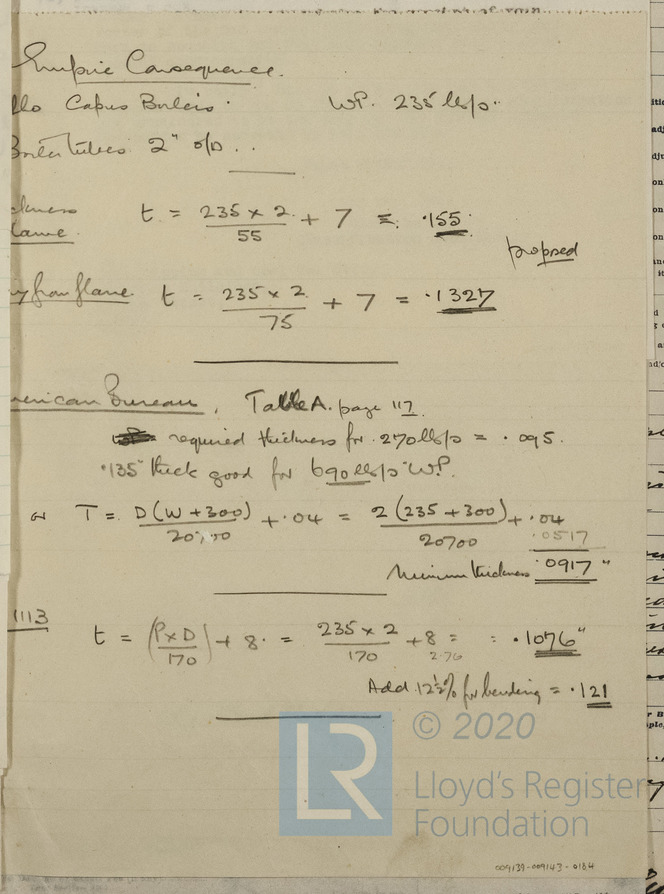 Empire Consequence.
Capus Boilers. WP. 235 lbs/p..
Boiler tubes 2" o/D . .
ckness
lame. t = 235 x 2 / 55 + 7 = .155.
proposed
y from flame. t = 235 x 2 / 75 + 7 = .1327
merican Bureau, Table A. page 117.
required thickness for 270 lbs/p = .095.
.135" thick good for 690 lbs/p" WP.
or T = D(W + 300) / 20700 + .04 = 2(235 + 300) / 20700 + .04
.0517
Minimum thickness .0917"
1113
t = (P x D / 170) + 8. = 235 x 2 / 170 + 8 = = .1076"
2.76
Add 12½% for bending = .121
© 2020
LR
Lloyd's Register
Foundation
009139-009143-0184